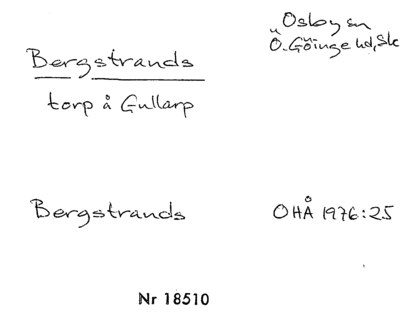 Bergstrands
Osby sn
Ö. Göinge hd, Sk
torp å Gullarp
Bergstrands
OHÅ 1976:25
Nr 18510